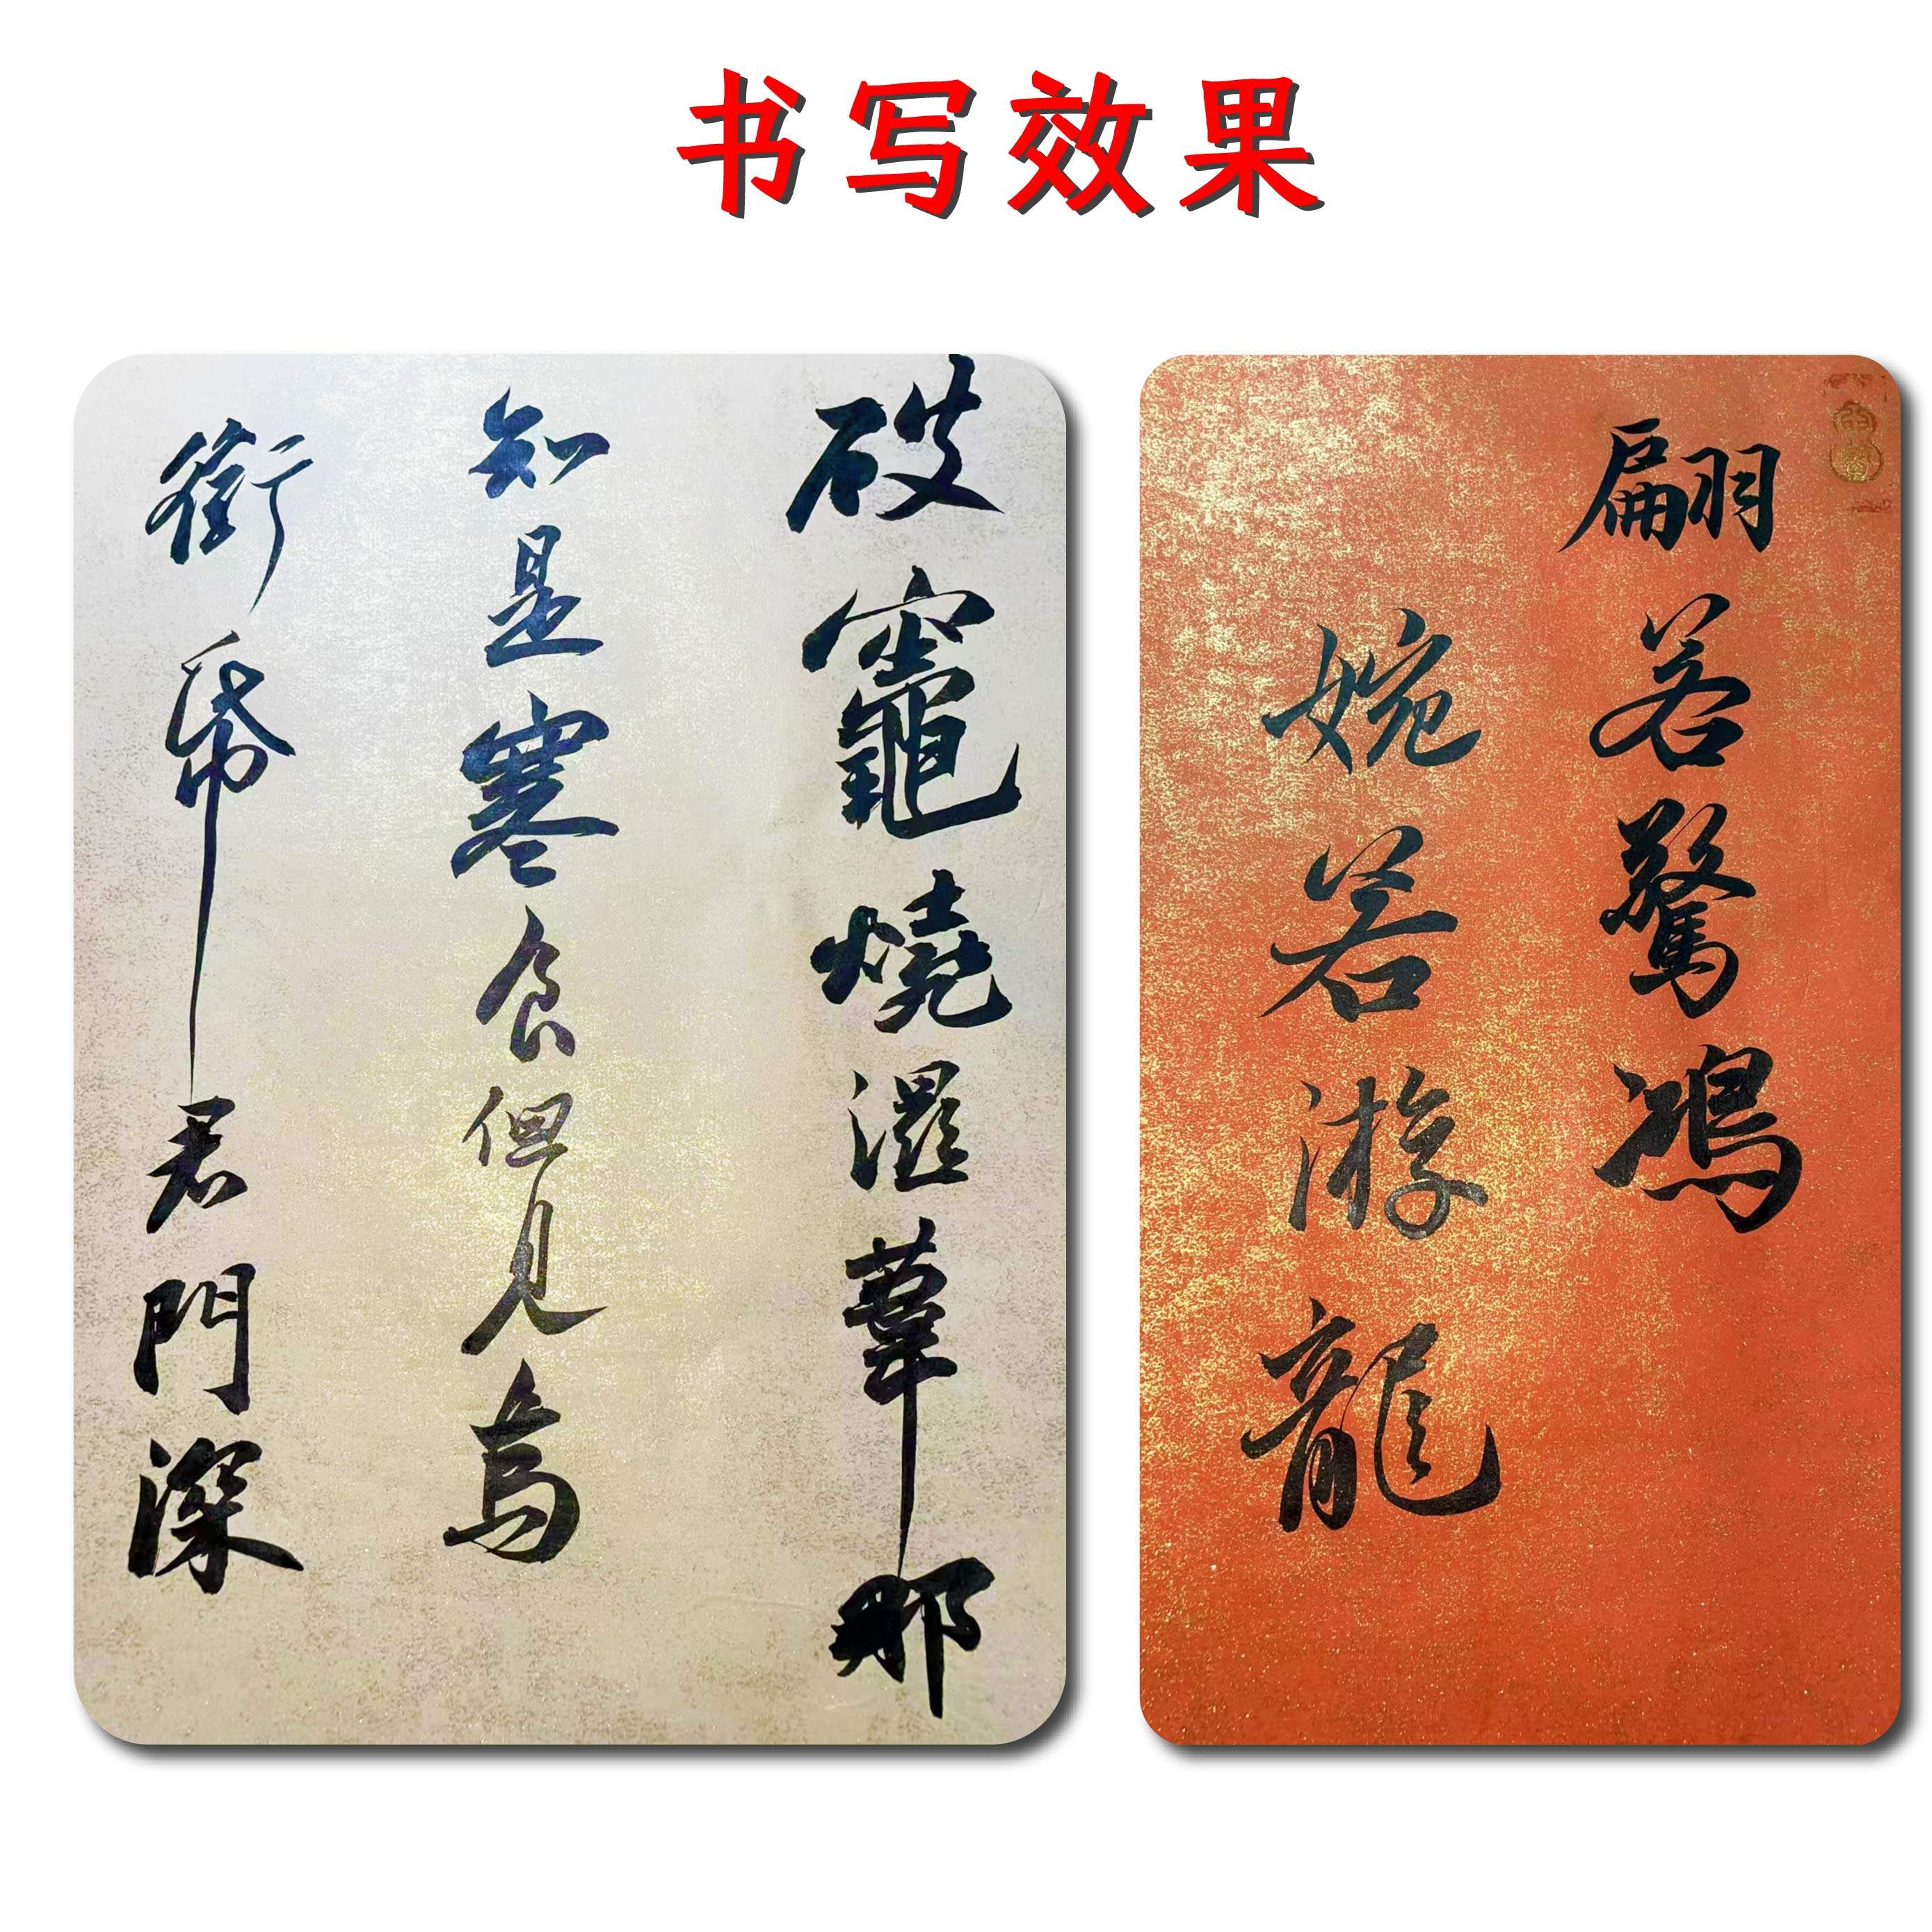 书写效果
破竈燒濕葦那
知是寒食但見烏
銜帋君門深
翩若驚鴻
婉若游龍